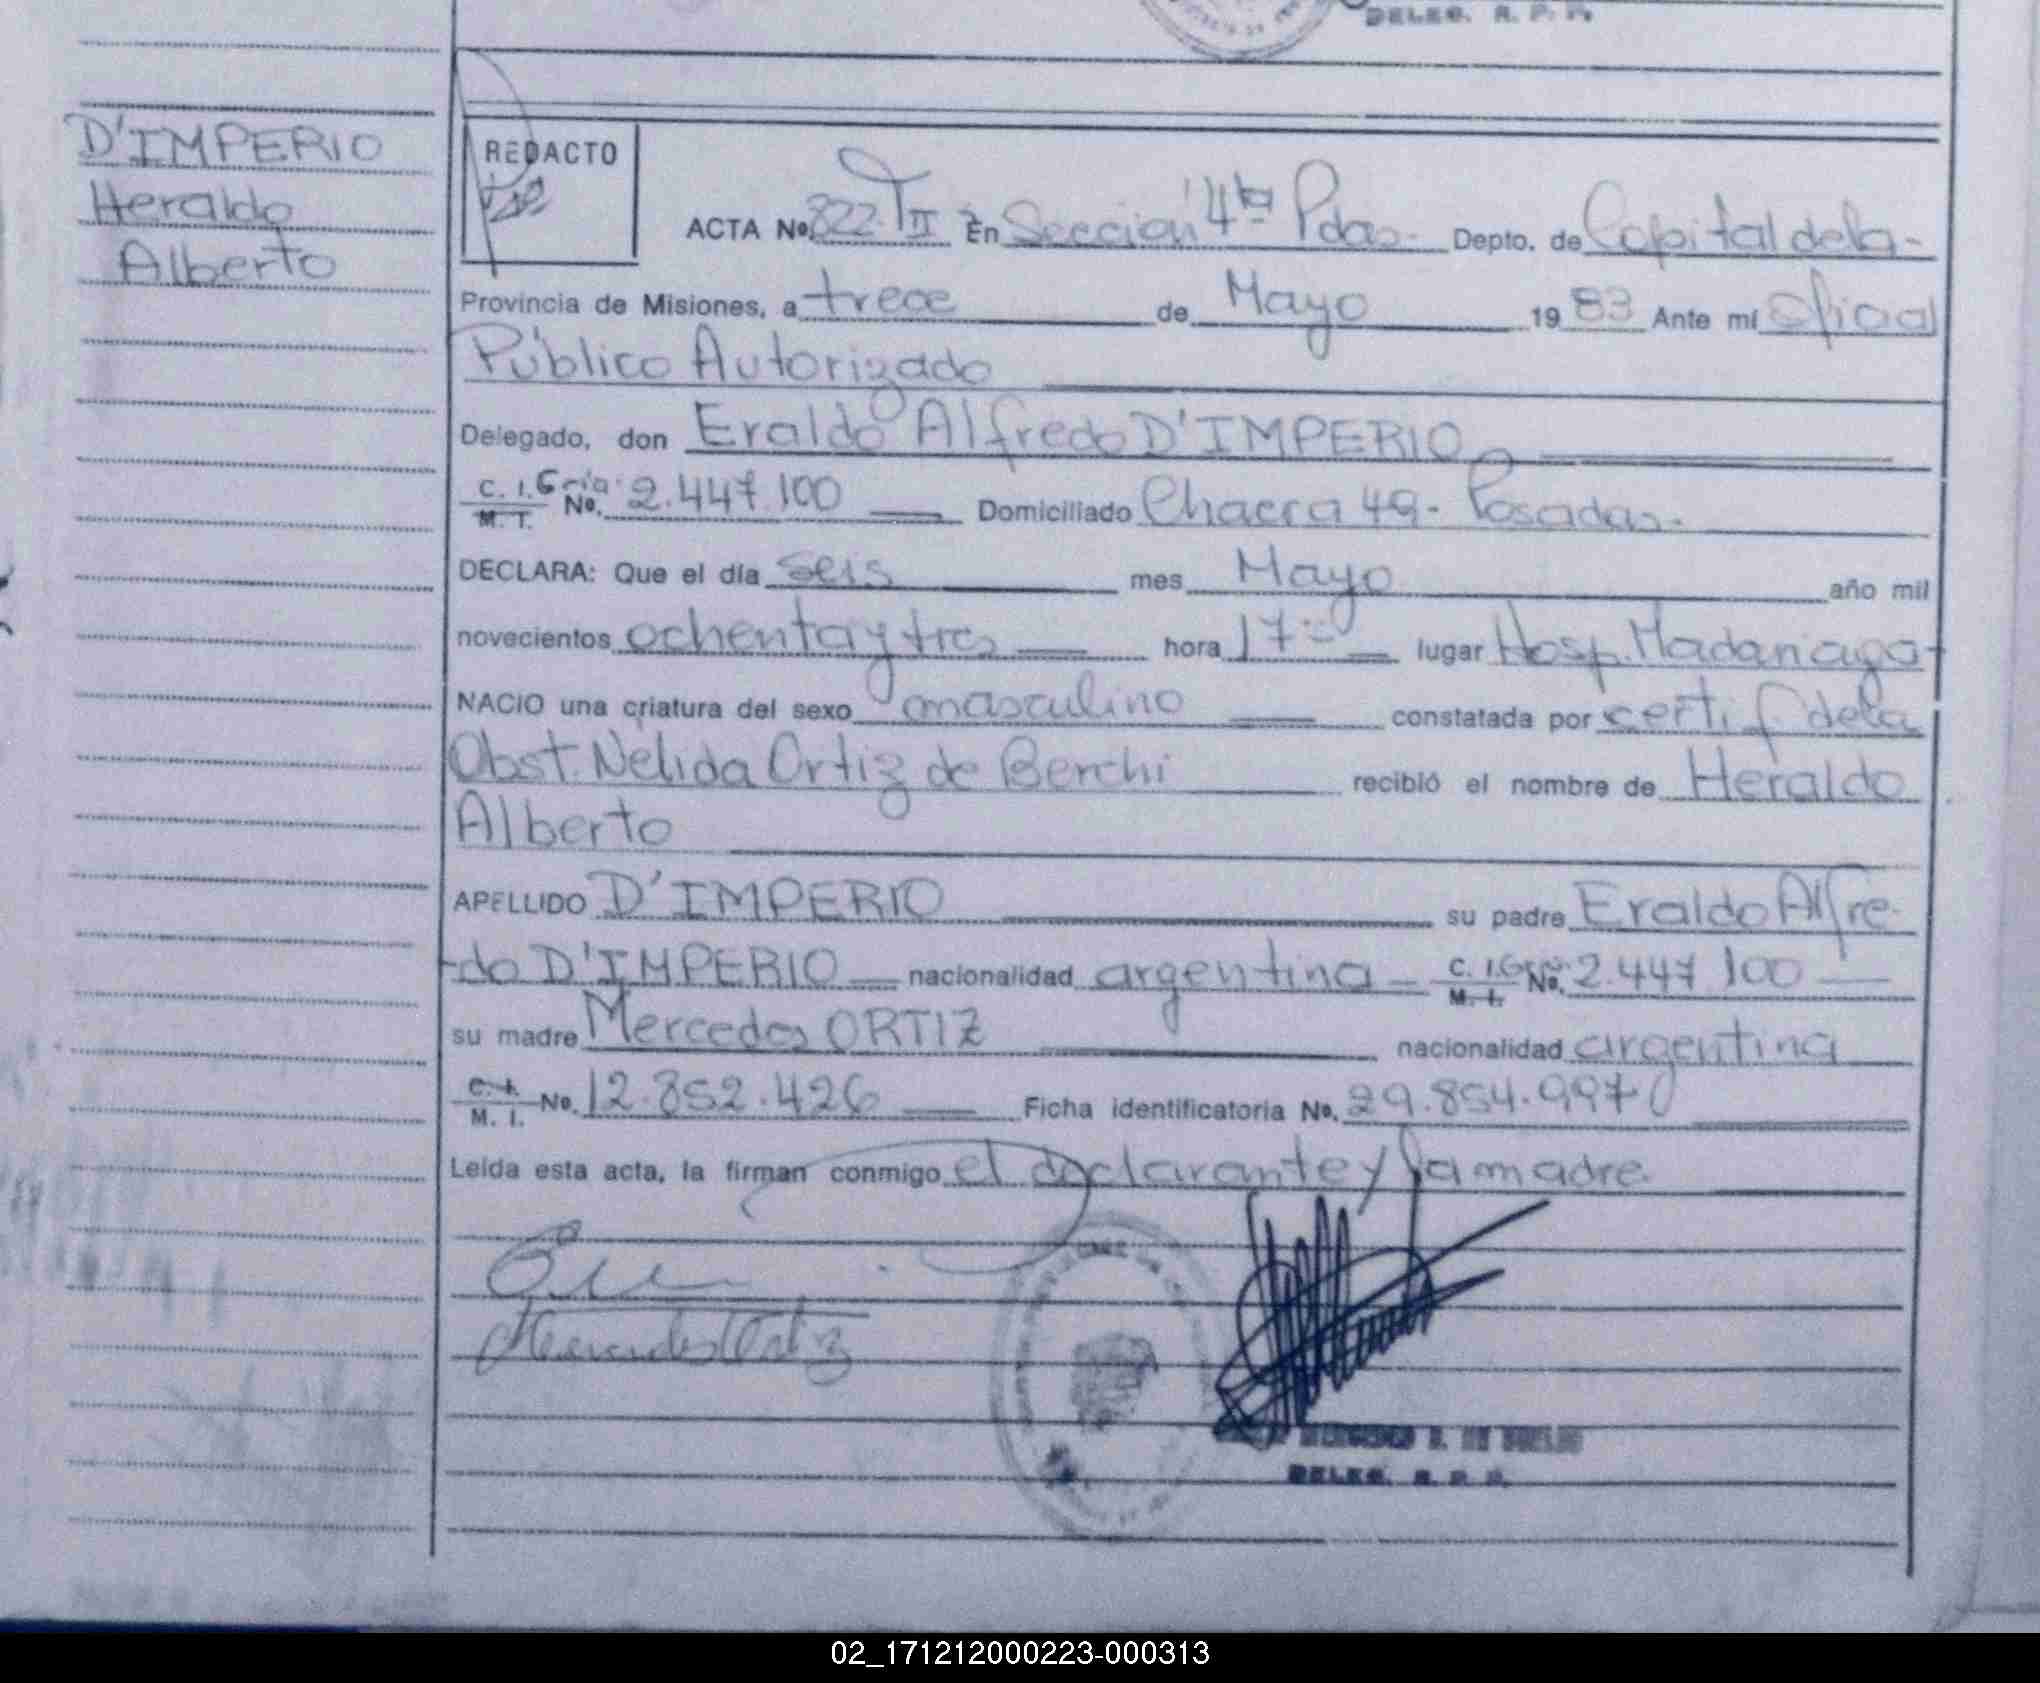 DELEG. R. P. P.
D'IMPERIO
Heraldo
Alberto
REDACTO
ACTA No. 822 T II En Sección 4ta Pdas. Depto. de Capital de la
Provincia de Misiones, a trece de Mayo 1983 Ante mí Oficial
Público Autorizado
Delegado, don Eraldo Alfredo D'IMPERIO
C. I. No. 2.447.100 Domiciliado Chacra 49 - Posadas.
M. I.
DECLARA: Que el día seis mes Mayo año mil
novecientos ochenta y tres hora 17 lugar Hosp. Madariaga
NACIO una criatura del sexo masculino constatada por certif de la
Obst. Nélida Ortiz de Berchi recibió el nombre de Heraldo
Alberto
APELLIDO D'IMPERIO su padre Eraldo Alfre-
do D'IMPERIO nacionalidad argentina C. I. No. 2.447 100
M. I.
su madre Mercedes ORTIZ nacionalidad argentina
C. I. No. 12.852.426 Ficha identificatoria No. 29.854.997
M. I.
Leída esta acta, la firman conmigo el declarante y la madre
Mercedes Ortiz
DELEG. R. P. P.
02_171212000223-000313